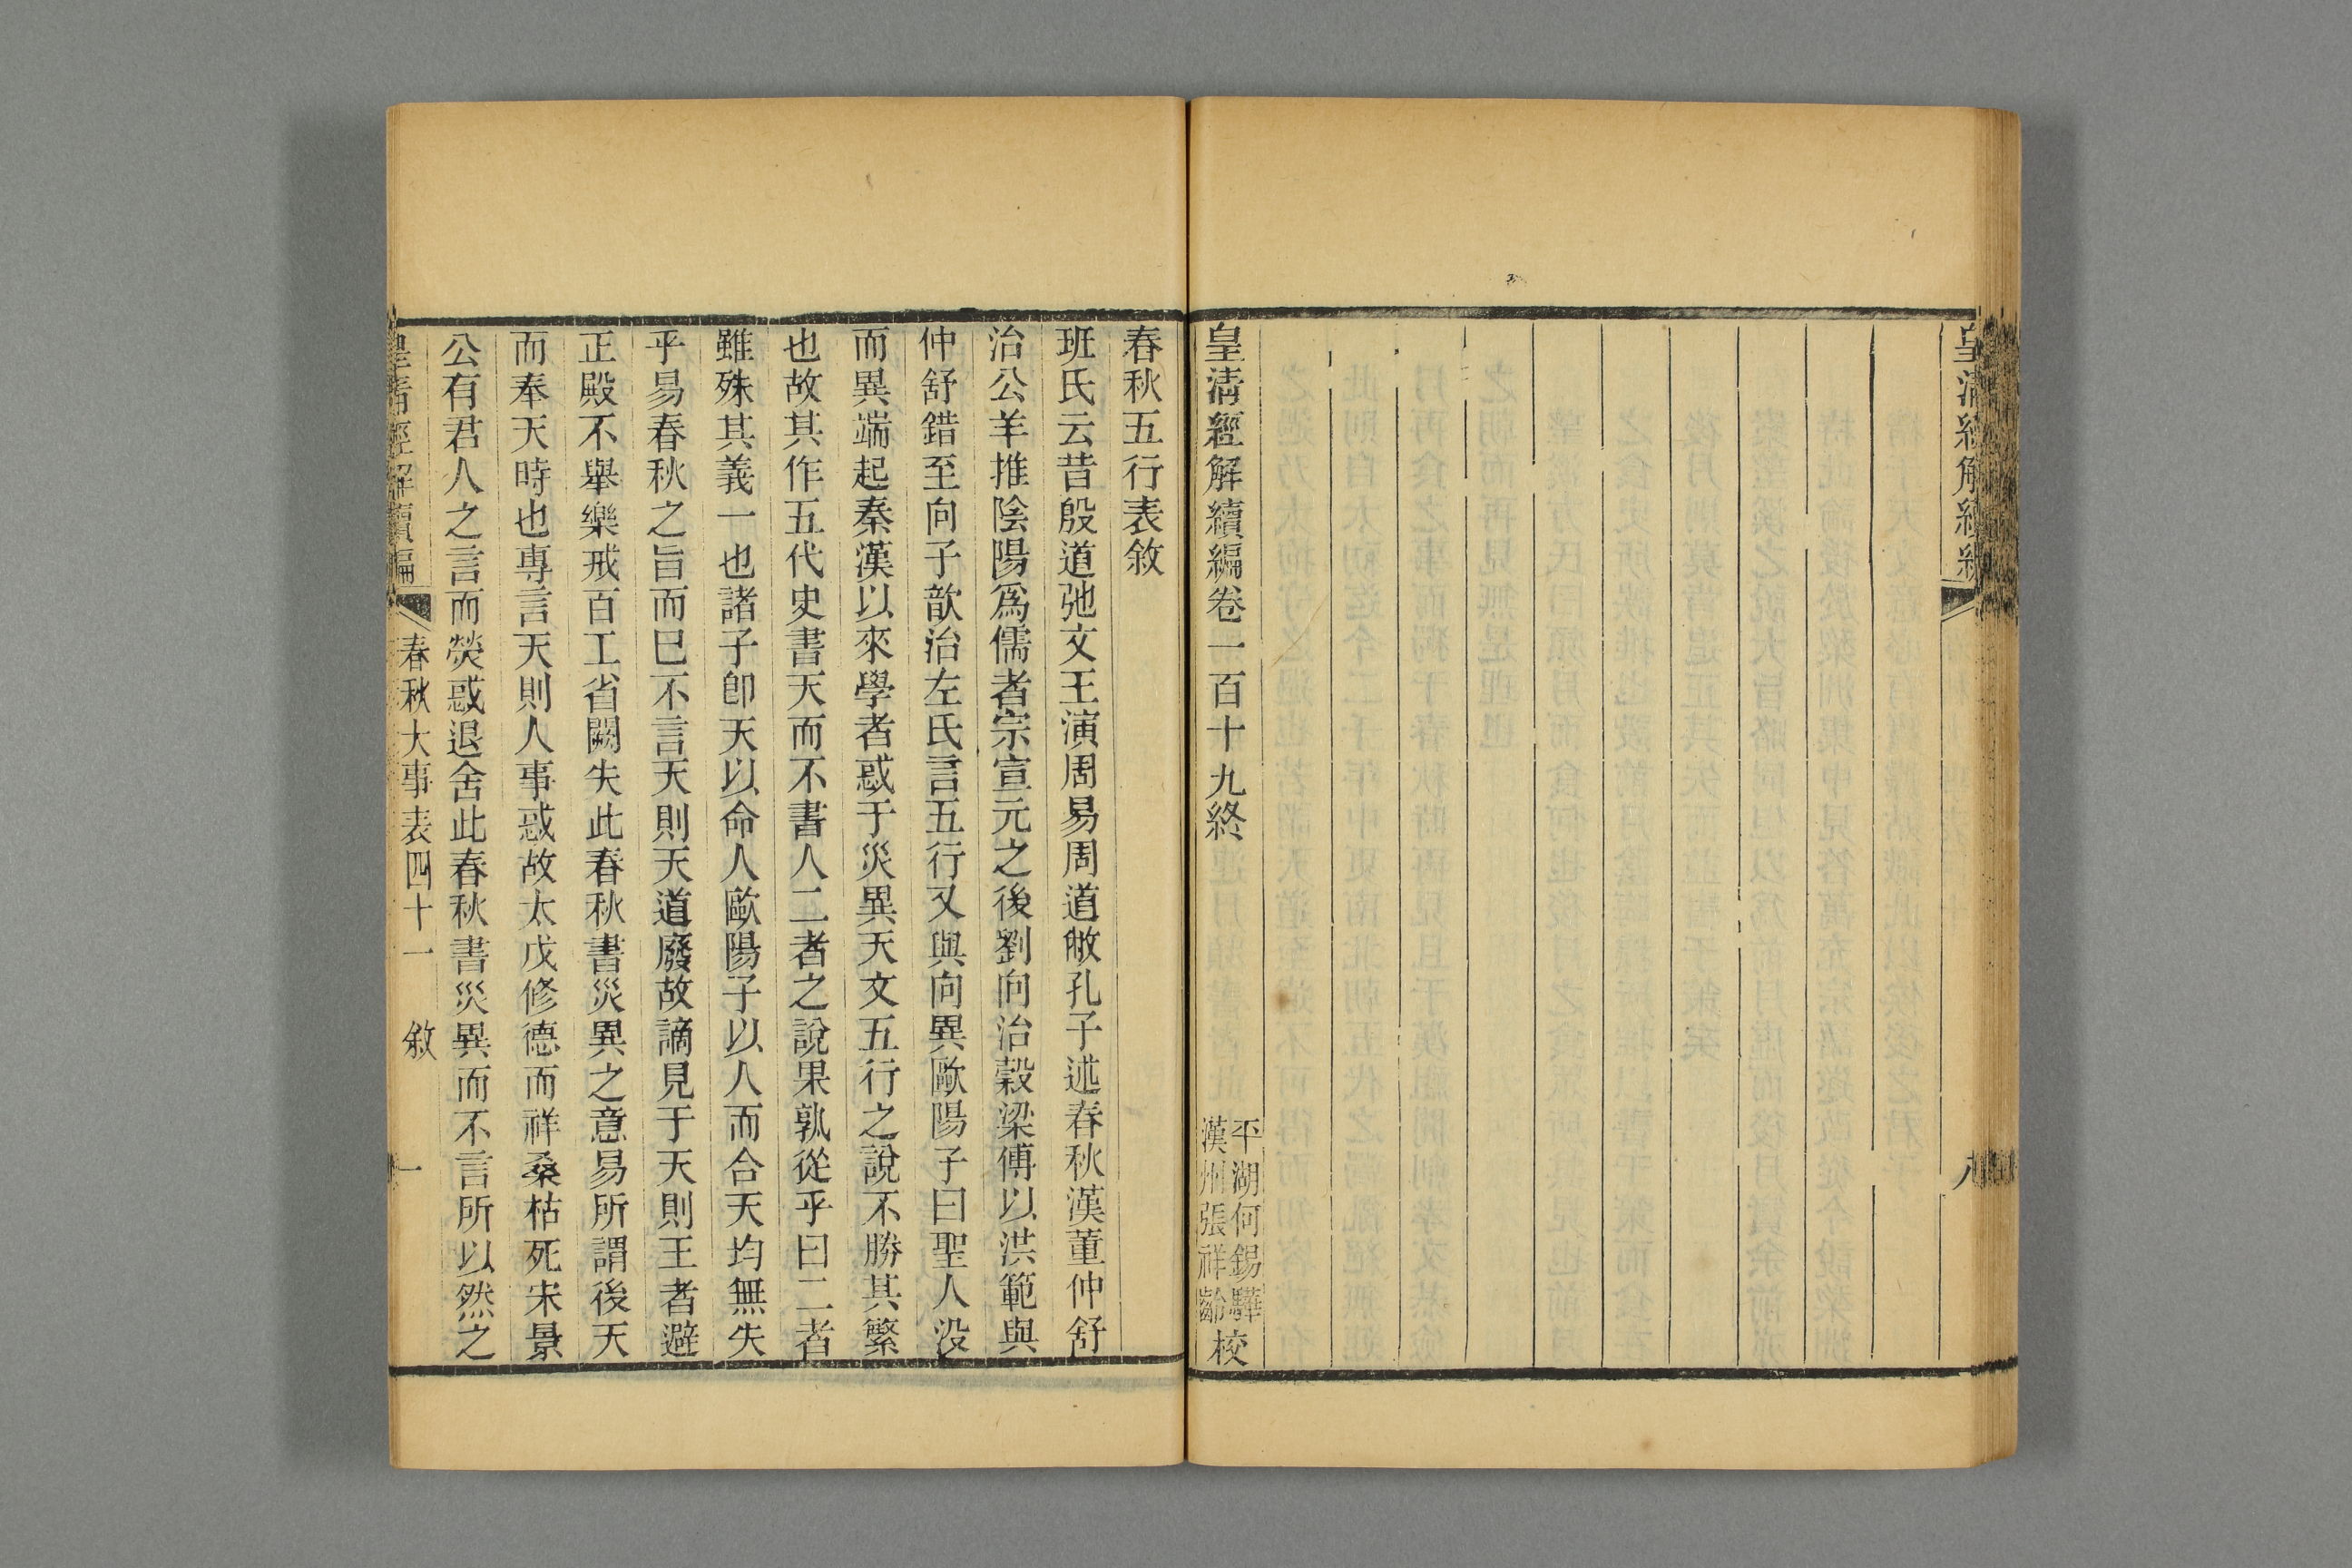 皇清經解續編
八
皇清經解續編卷一百十九終
平湖何錫驊
漢州張祥齡
校
春秋五行表敘
班氏云昔殷道弛文王演周易周道敝孔子述春秋漢董仲舒
治公羊推陰陽爲儒者宗宣元之後劉向治穀梁傳以洪範與
仲舒錯至向子歆治左氏言五行又與向異歐陽子曰聖人没
而異端起秦漢以來學者惑于災異天文五行之說不勝其繁
也故其作五代史書天而不書人二者之說果孰從乎曰二者
雖殊其義一也諸子卽天以命人歐陽子以人而合天均無失
乎易春秋之旨而巳不言天則天道廢故謫見于天則王者避
正殿不舉樂戒百工省闕失此春秋書災異之意易所謂後天
而奉天時也專言天則人事惑故太戊修德而祥桑枯死宋景
公有君人之言而熒惑退舍此春秋書災異而不言所以然之
皇清經解續編
春秋大事表四十一
敘
一